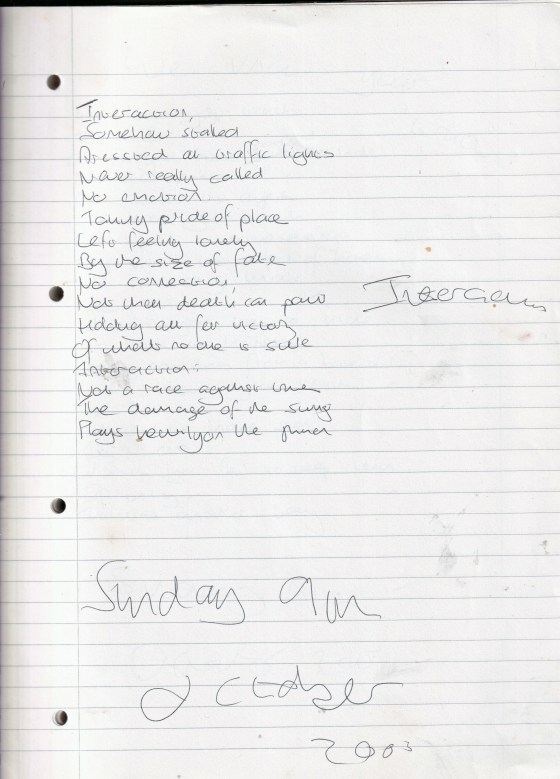 Interaction,
Somehow stalled
Dressed at traffic lights
Never really called
No emotion
Taking pride of place
Left feeling lonely
By the size of fate
No connection,
Not then death can
Interaction
Holding out for victory
Of whats no one is sure
Interaction:
Not a race against time
The damage of the
Plays heavily on the
Sunday 9am
October
2003